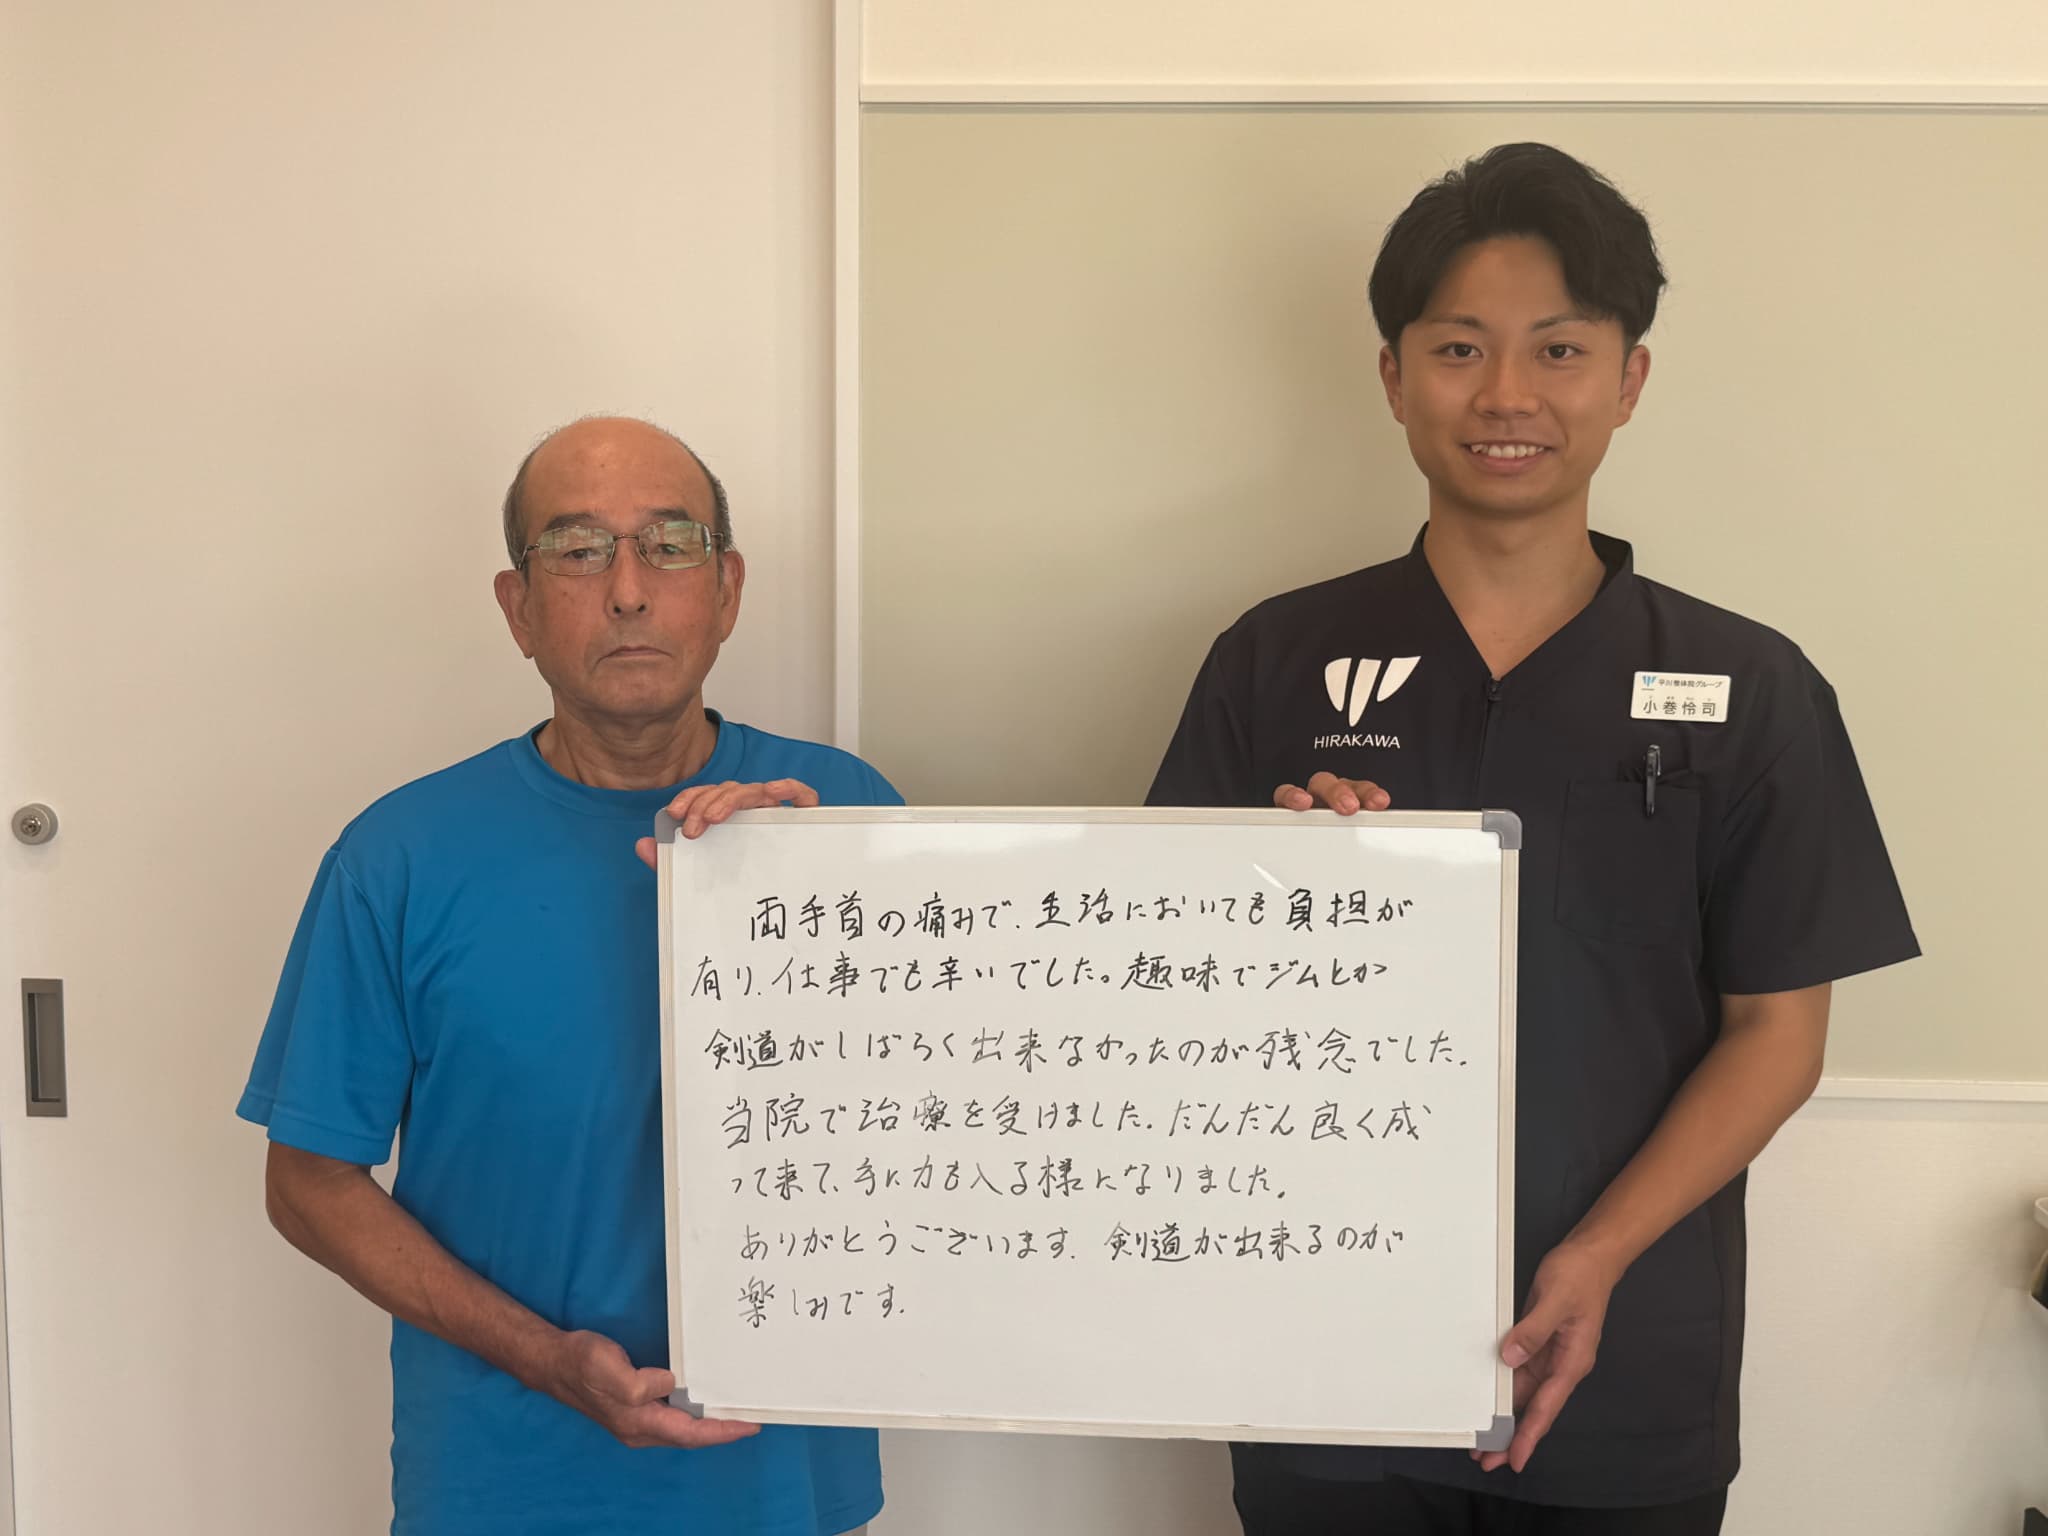 平川整体院グループ
小巻怜司
HIRAKAWA
両手首の痛みで、生活においても負担が
有り、仕事でも辛いでした。趣味でジムとか
剣道がしばらく出来なかったのが残念でした。
当院で治療を受けました。だんだん良く成
って来て、手に力も入る様になりました。
ありがとうございます。剣道が出来るのが
楽しみです。